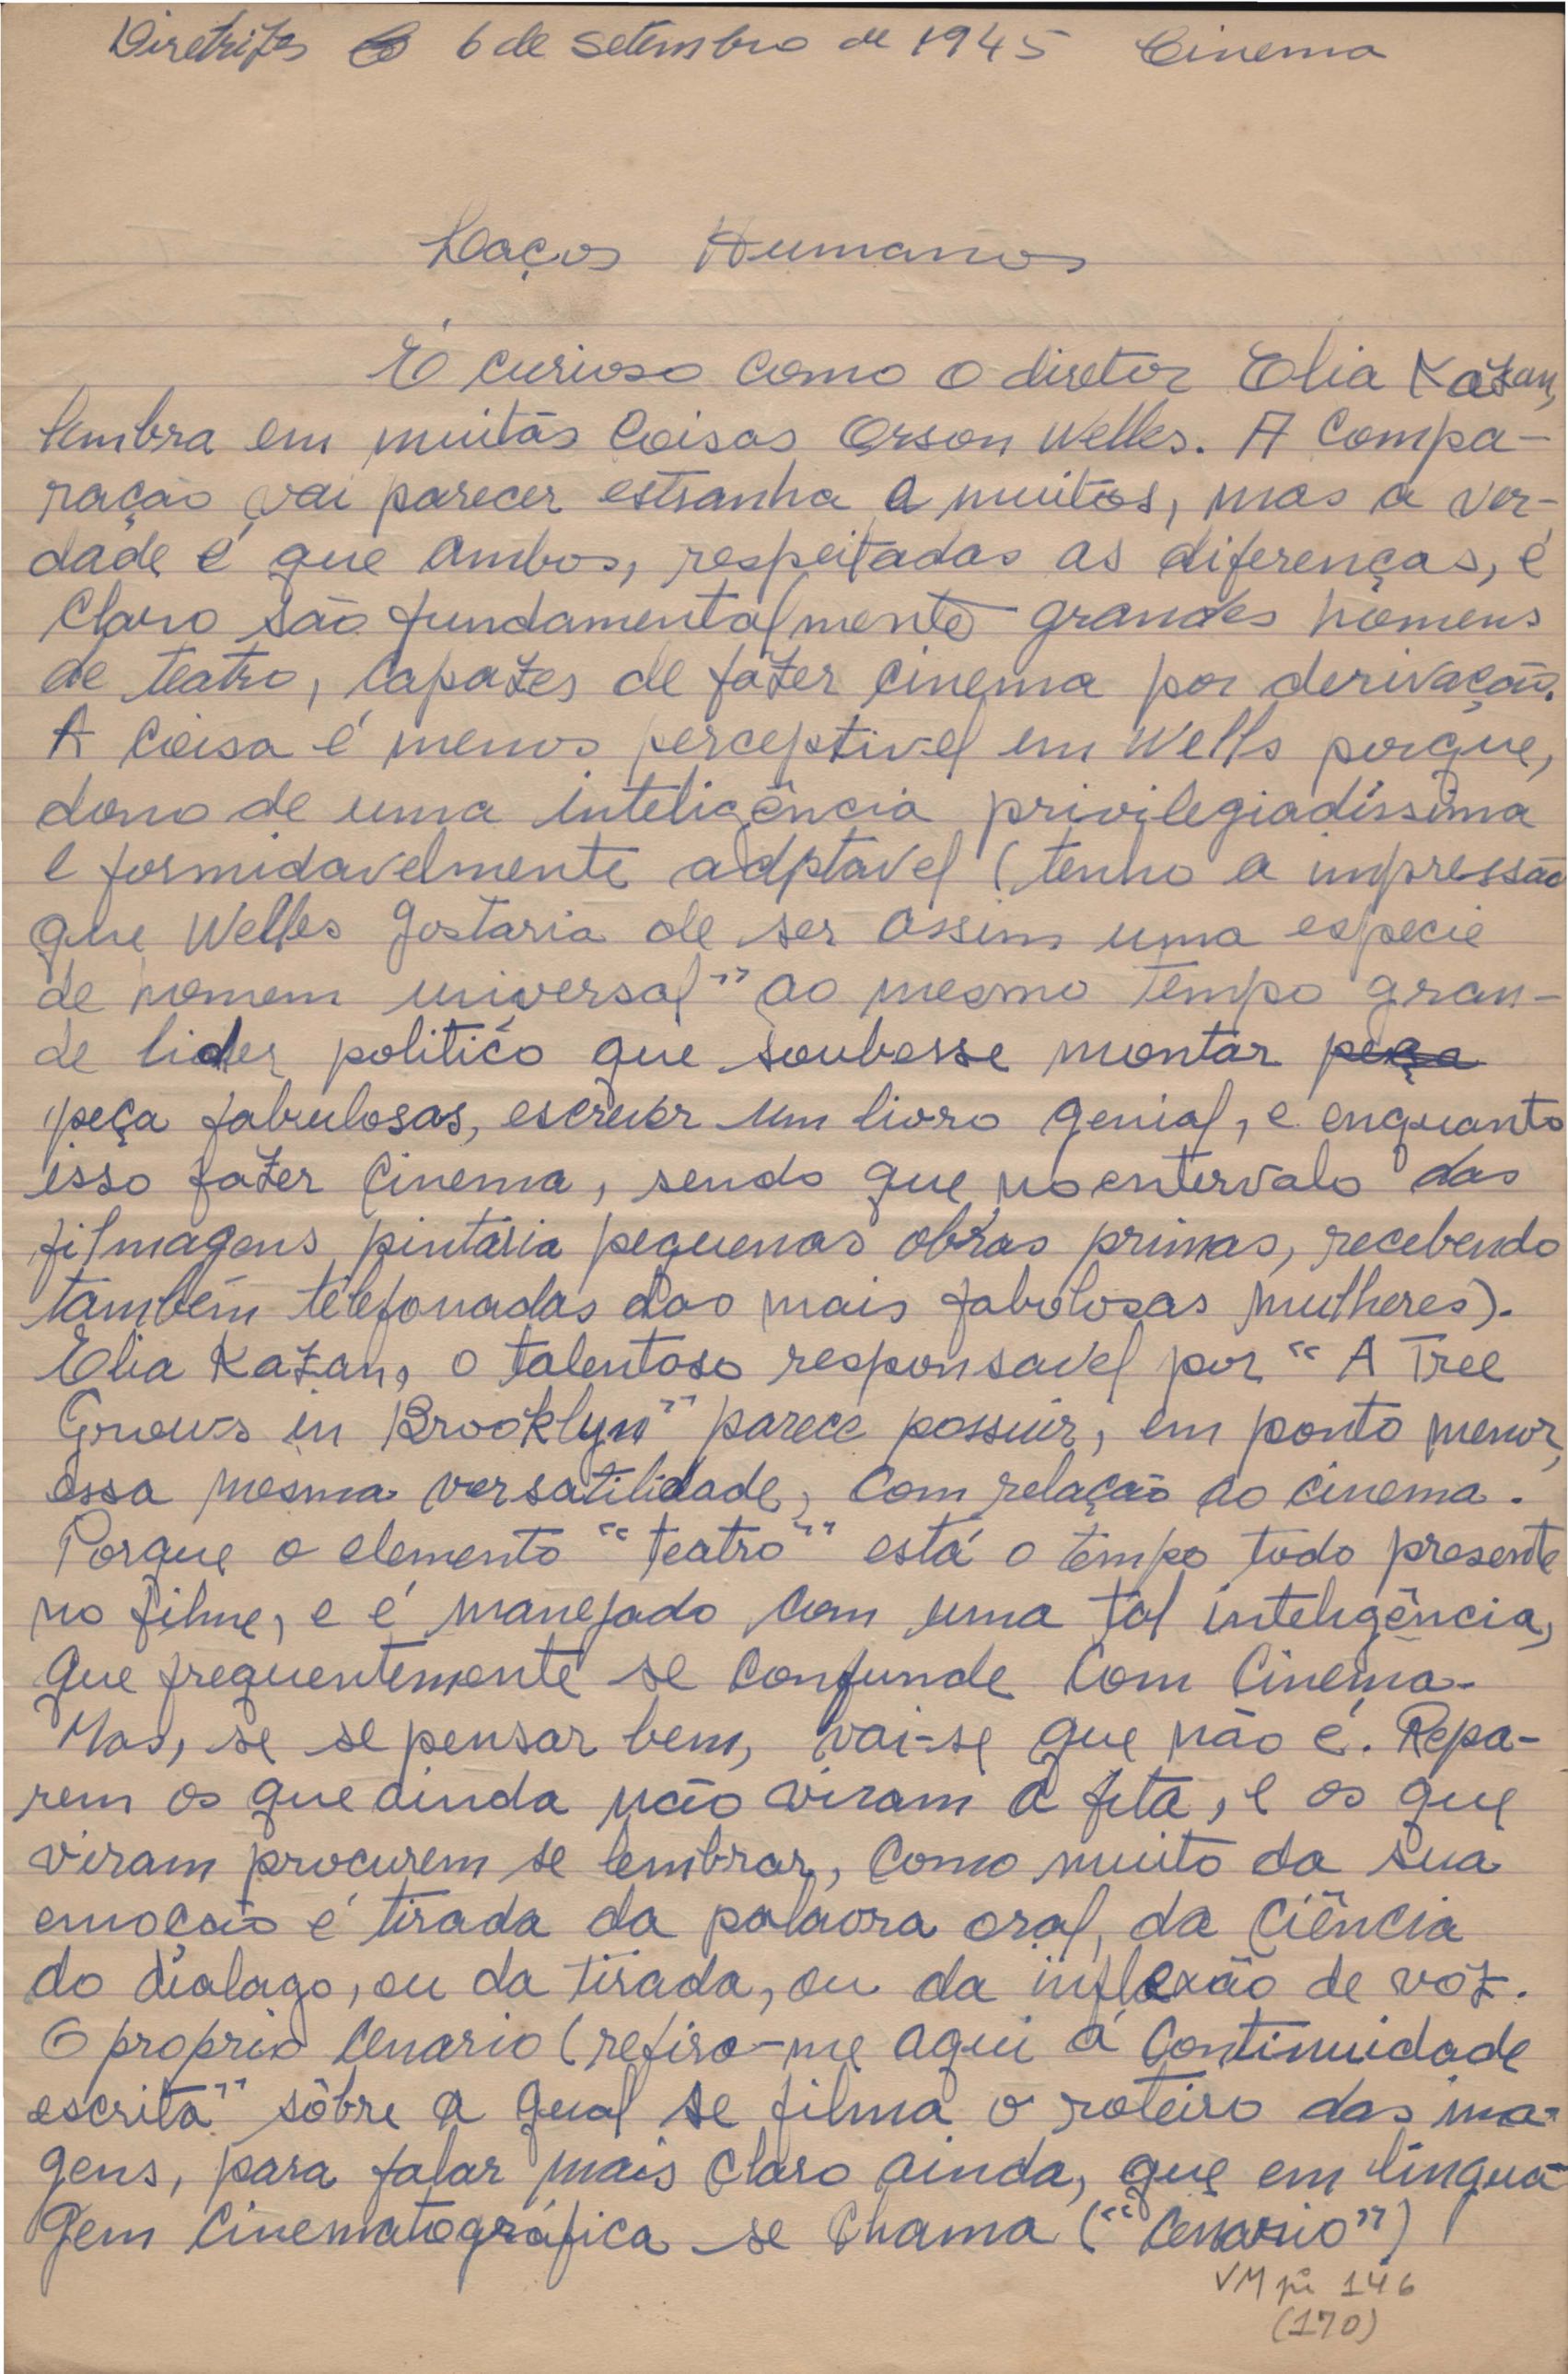 Diretrizes 6 de setembro de 1945 Cinema
Laços Humanos
É curioso como o diretor Elia Kazan,
lembra em muitas coisas Orson Welles. A compa-
ração vai parecer estranha a muitos, mas a ver-
dade é que ambos, respeitadas as diferenças, é
claro são fundamentalmente grandes homens
de teatro, capazes de fazer cinema por derivação.
A coisa é menos perceptivel em Wells porque,
dono de uma inteligência privilegiadíssima
e formidavelmente adptavel (tenho a impressão
que Welles gostaria de ser assim uma especie
de homem universal" ao mesmo tempo gran-
de lider politico que soubesse montar peça
peça fabulosas, escrever um livro genial, e enquanto
isso fazer cinema, sendo que no entervalo das
filmagens pintaria pequenas obras primas, recebendo
também telefonadas das mais fabolosas mulheres).
Elia Kazan, o talentoso responsavel por "A Tree
Grows in Brooklyn" parece possuir, em ponto menor,
essa mesma versatilidade, com relação ao cinema.
Porque o elemento "teatro" está o tempo todo presente
no filme, e é manejado com uma tal inteligência,
que frequentemente se confunde com cinema.
Mas, se se pensar bem, vai-se que não é. Repa-
rem os que ainda não viram a fita, e os que
viram procurem se lembrar, como muito da sua
emoção é tirada da palavra oral, da ciência
do dialago, ou da tirada, ou da inflexão de voz.
O proprio cenario (refiro-me aqui á continuidade
escrita" sôbre a qual se filma o roteiro das ima-
gens, para falar mais claro ainda, que em lingua-
gem cinematográfica se chama ("cenario")
VM pi 146
(170)